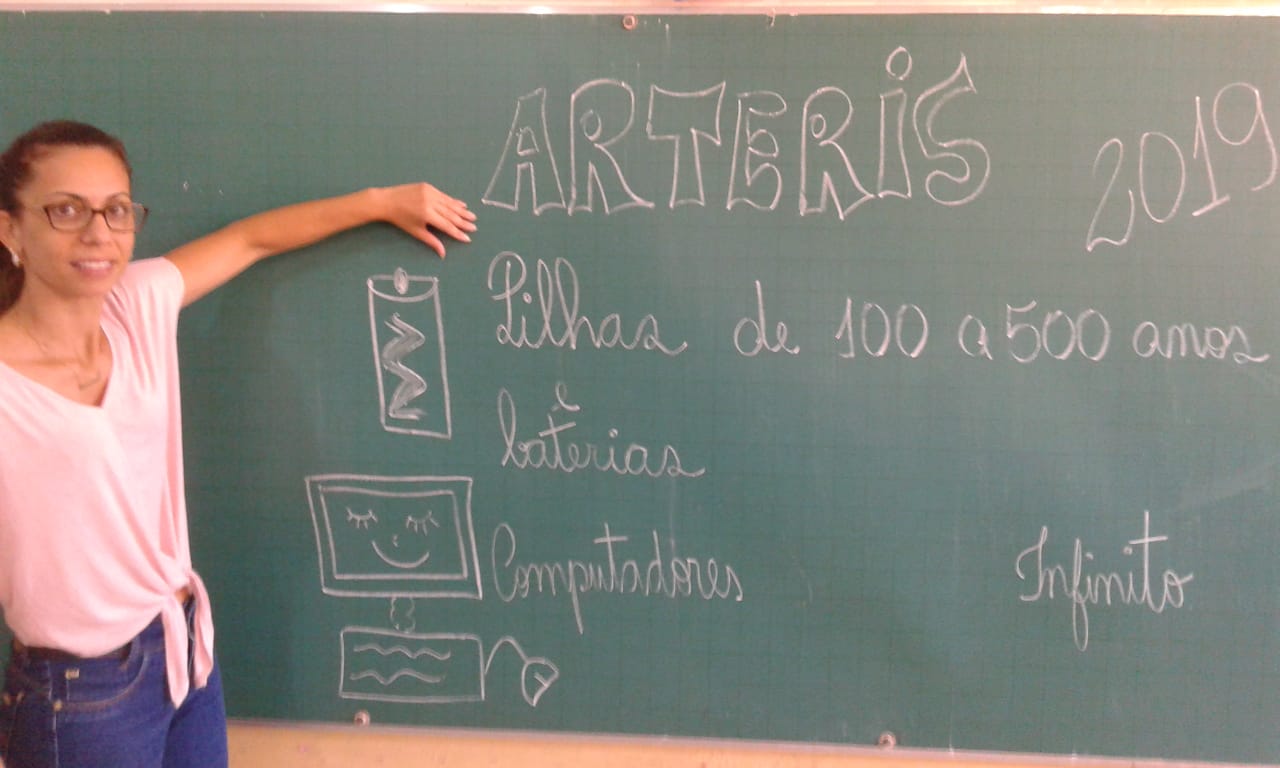 ARTERiS 2019
Pilhas de 100 a 500 anos
e
baterias
Computadores Infinito